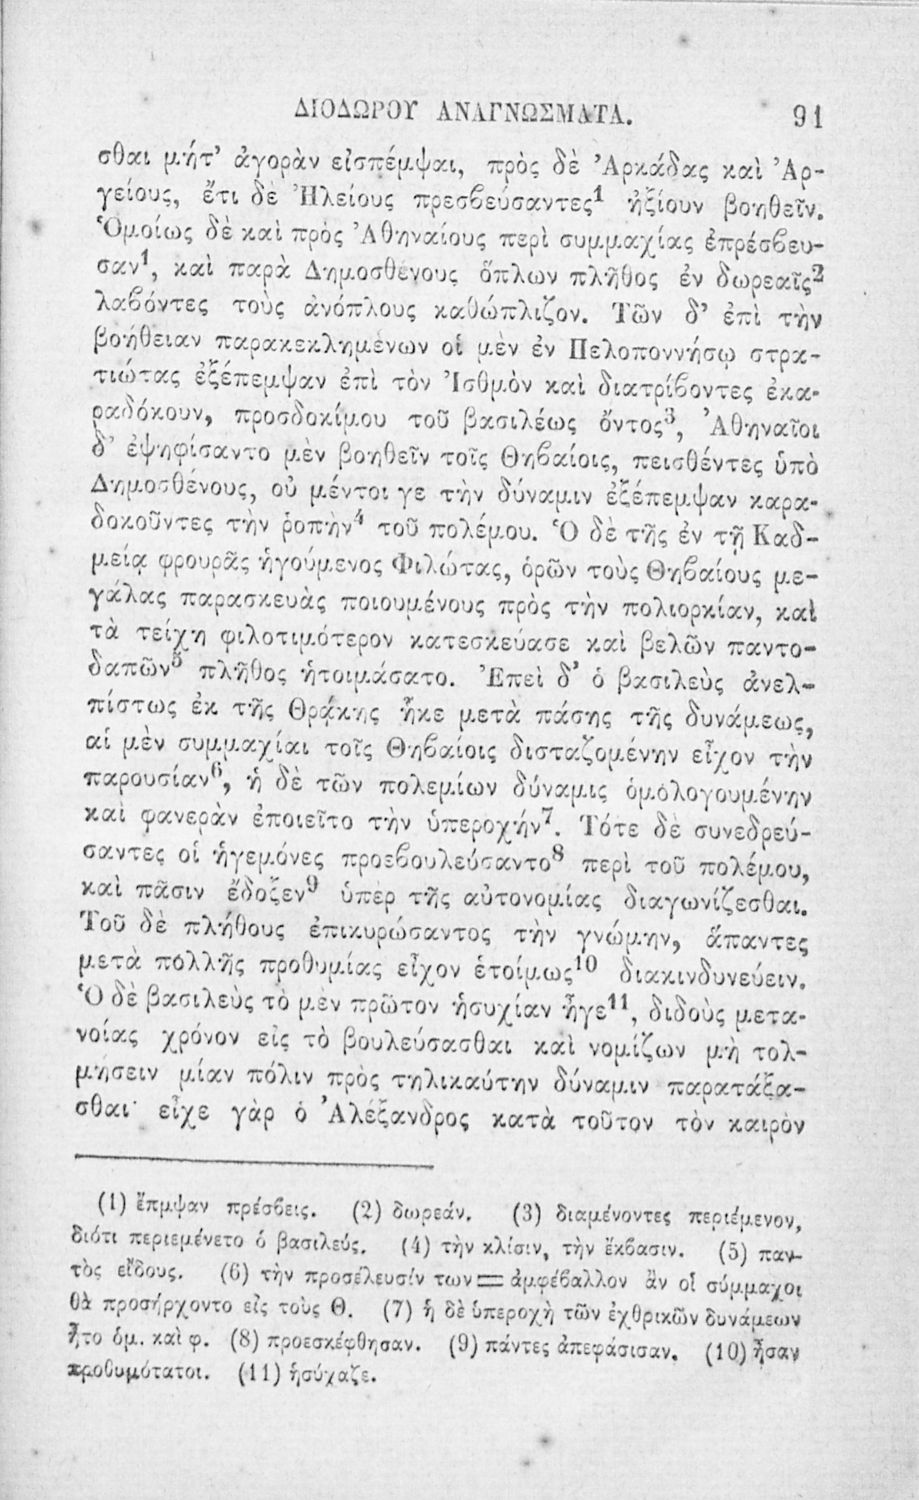 ΔΙΟΔΩΡΟΥ ΑΝΑΓΝΩΣΜΑΤΑ. 91
σθαι μήτ’ ἀγορὰν εἰσπέμψαι, πρὸς δὲ Ἀρκάδας καὶ Ἀρ-
γείους, ἔτι δὲ Ἠλείους πρεσβεύσαντες¹ ἠξίουν βοηθεῖν.
Ὁμοίως δὲ καὶ πρὸς Ἀθηναίους περὶ συμμαχίας ἐπρέσβευ-
σαν¹, καὶ παρὰ Δημοσθένους ὅπλων πλῆθος ἐν δωρεαῖς²
λαβόντες τοὺς ἀνόπλους καθώπλιζον. Τῶν δ’ ἐπὶ τὴν
βοήθειαν παρακεκλημένων οἱ μὲν ἐν Πελοποννήσῳ στρα-
τιώτας ἐξέπεμψαν ἐπὶ τὸν Ἰσθμὸν καὶ διατρίβοντες ἐκα-
ραδόκουν, προσδοκίμου τοῦ βασιλέως ὄντος³, Ἀθηναῖοι
δ’ ἐψηφίσαντο μὲν βοηθεῖν τοῖς Θηβαίοις, πεισθέντες ὑπὸ
Δημοσθένους, οὐ μέντοι γε τὴν δύναμιν ἐξέπεμψαν καρα-
δοκοῦντες τὴν ῥοπὴν⁴ τοῦ πολέμου. Ὁ δὲ τῆς ἐν τῇ Καδ-
μείᾳ φρουρᾶς ἡγούμενος Φιλώτας, ὁρῶν τοὺς Θηβαίους με-
γάλας παρασκευὰς ποιουμένους πρὸς τὴν πολιορκίαν, καὶ
τὰ τείχη φιλοτιμότερον κατεσκεύασε καὶ βελῶν παντο-
δαπῶν⁵ πλῆθος ἡτοιμάσατο. Ἐπεὶ δ’ ὁ βασιλεὺς ἀνελ-
πίστως ἐκ τῆς Θρᾴκης ἧκε μετὰ πάσης τῆς δυνάμεως,
αἱ μὲν συμμαχίαι τοῖς Θηβαίοις δισταζομένην εἶχον τὴν
παρουσίαν⁶, ἡ δὲ τῶν πολεμίων δύναμις ὁμολογουμένην
καὶ φανερὰν ἐποιεῖτο τὴν ὑπεροχήν⁷. Τότε δὲ συνεδρεύ-
σαντες οἱ ἡγεμόνες προεβουλεύσαντο⁸ περὶ τοῦ πολέμου,
καὶ πᾶσιν ἔδοξεν⁹ ὑπερ τῆς αὐτονομίας διαγωνίζεσθαι.
Τοῦ δὲ πλήθους ἐπικυρώσαντος τὴν γνώμην, ἅπαντες
μετὰ πολλῆς προθυμίας εἶχον ἑτοίμως¹⁰ διακινδυνεύειν.
Ὁ δὲ βασιλεὺς τὸ μὲν πρῶτον ἡσυχίαν ἦγε¹¹, διδοὺς μετα-
νοίας χρόνον εἰς τὸ βουλεύσασθαι καὶ νομίζων μὴ τολ-
μήσειν μίαν πόλιν πρὸς τηλικαύτην δύναμιν παρατάξα-
σθαι· εἶχε γὰρ ὁ Ἀλέξανδρος κατὰ τοῦτον τὸν καιρὸν
(1) ἔπμψαν πρέσβεις. (2) δωρεάν. (3) διαμένοντες περιέμενον,
διότι περιεμένετο ὁ βασιλεύς. (4) τὴν κλίσιν, τὴν ἔκβασιν. (5) παν-
τὸς εἴδους. (6) τὴν προσέλευσίν των = ἀμφέβαλλον ἂν οἱ σύμμαχοι
θὰ προσήρχοντο εἰς τοὺς Θ. (7) ἡ δὲ ὑπεροχὴ τῶν ἐχθρικῶν δυνάμεων
ἦτο ὁμ. καὶ φ. (8) προεσκέφθησαν. (9) πάντες ἀπεφάσισαν. (10) ἦσαν
προθυμότατοι. (11) ἡσύχαζε.